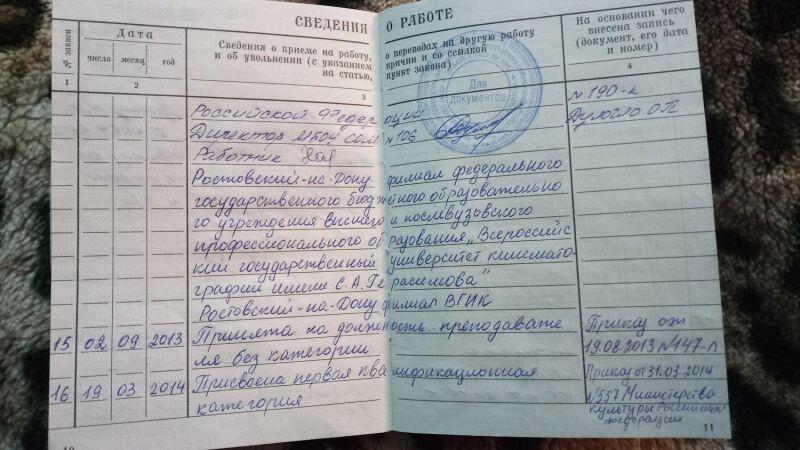 СВЕДЕНИЯ О РАБОТЕ
№ записи
Дата
число
месяц
год
Сведения о приеме на работу, о переводах на другую работу
и об увольнении (с указанием причин и со ссылкой
на статью, пункт закона)
На основании чего
внесена запись
(документ, его дата
и номер)
1
2
3
4
Для
документов
Российской Федерации № 190-л
Директор МБОУ СОШ №106
Работник
Ростовский-на-Дону филиал федерального
государственного бюджетного образовательно
го учреждения высшего и послевузовского
профессионального образования „Всероссийс
кий государственный университет кинемато
графии имени С.А. Герасимова"
Ростовский-на-Дону филиал ВГИК
15 02 09 2013 Принята на должность преподавате Приказ от
ля без категории 19.08.2013 №147-л
16 19 03 2014 Присвоена первая квалификационная Приказ от 31.03.2014
категория №557 Министерства
культуры Российской
Федерации
11